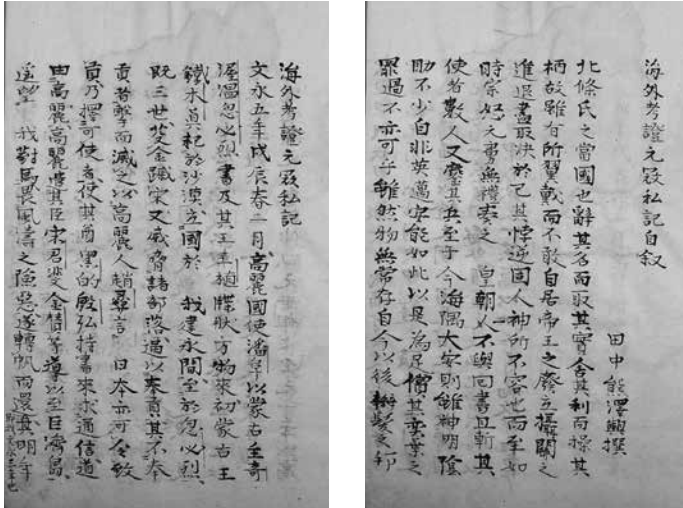 海外考證元寇私記自叙
田中能澤興撰
北條氏之當國也辭其名而取其實舍其利而操其
柄故雖有所翼戴而不敢自居帝王之廢立攝關之
進退盡取決於己其悖逆國人神所不容也而至如
時宗怒元書無禮奏之 皇朝又不與回書且斬其
使者數人又鏖其兵至于今海隅大安則雖神明陰
助不少自非英邁安能如此以是為足償其奕葉之
罪過不亦可乎雖然物無常存自今以後辮髮之邦
海外考證元寇私記
文永五年戊辰春二月高麗國使潘阜以蒙古主奇
渥温忽必烈書及其王王植牒狀方物來初蒙古王
鐵木真起於沙漠立國於 我建永間至於忽必烈
既三世芟金蹴宋又威脅諸部落以来貢其不奉
貢者擊而滅之以高麗人趙彝言 日本亦可令致
貢乃擇可使者使其酋黑的殷弘持書來求通信道
由高麗高麗其臣宋君斐金贊等導以至巨濟島
遥望 我對馬畏風濤之險惡遂轉帆而還其明年